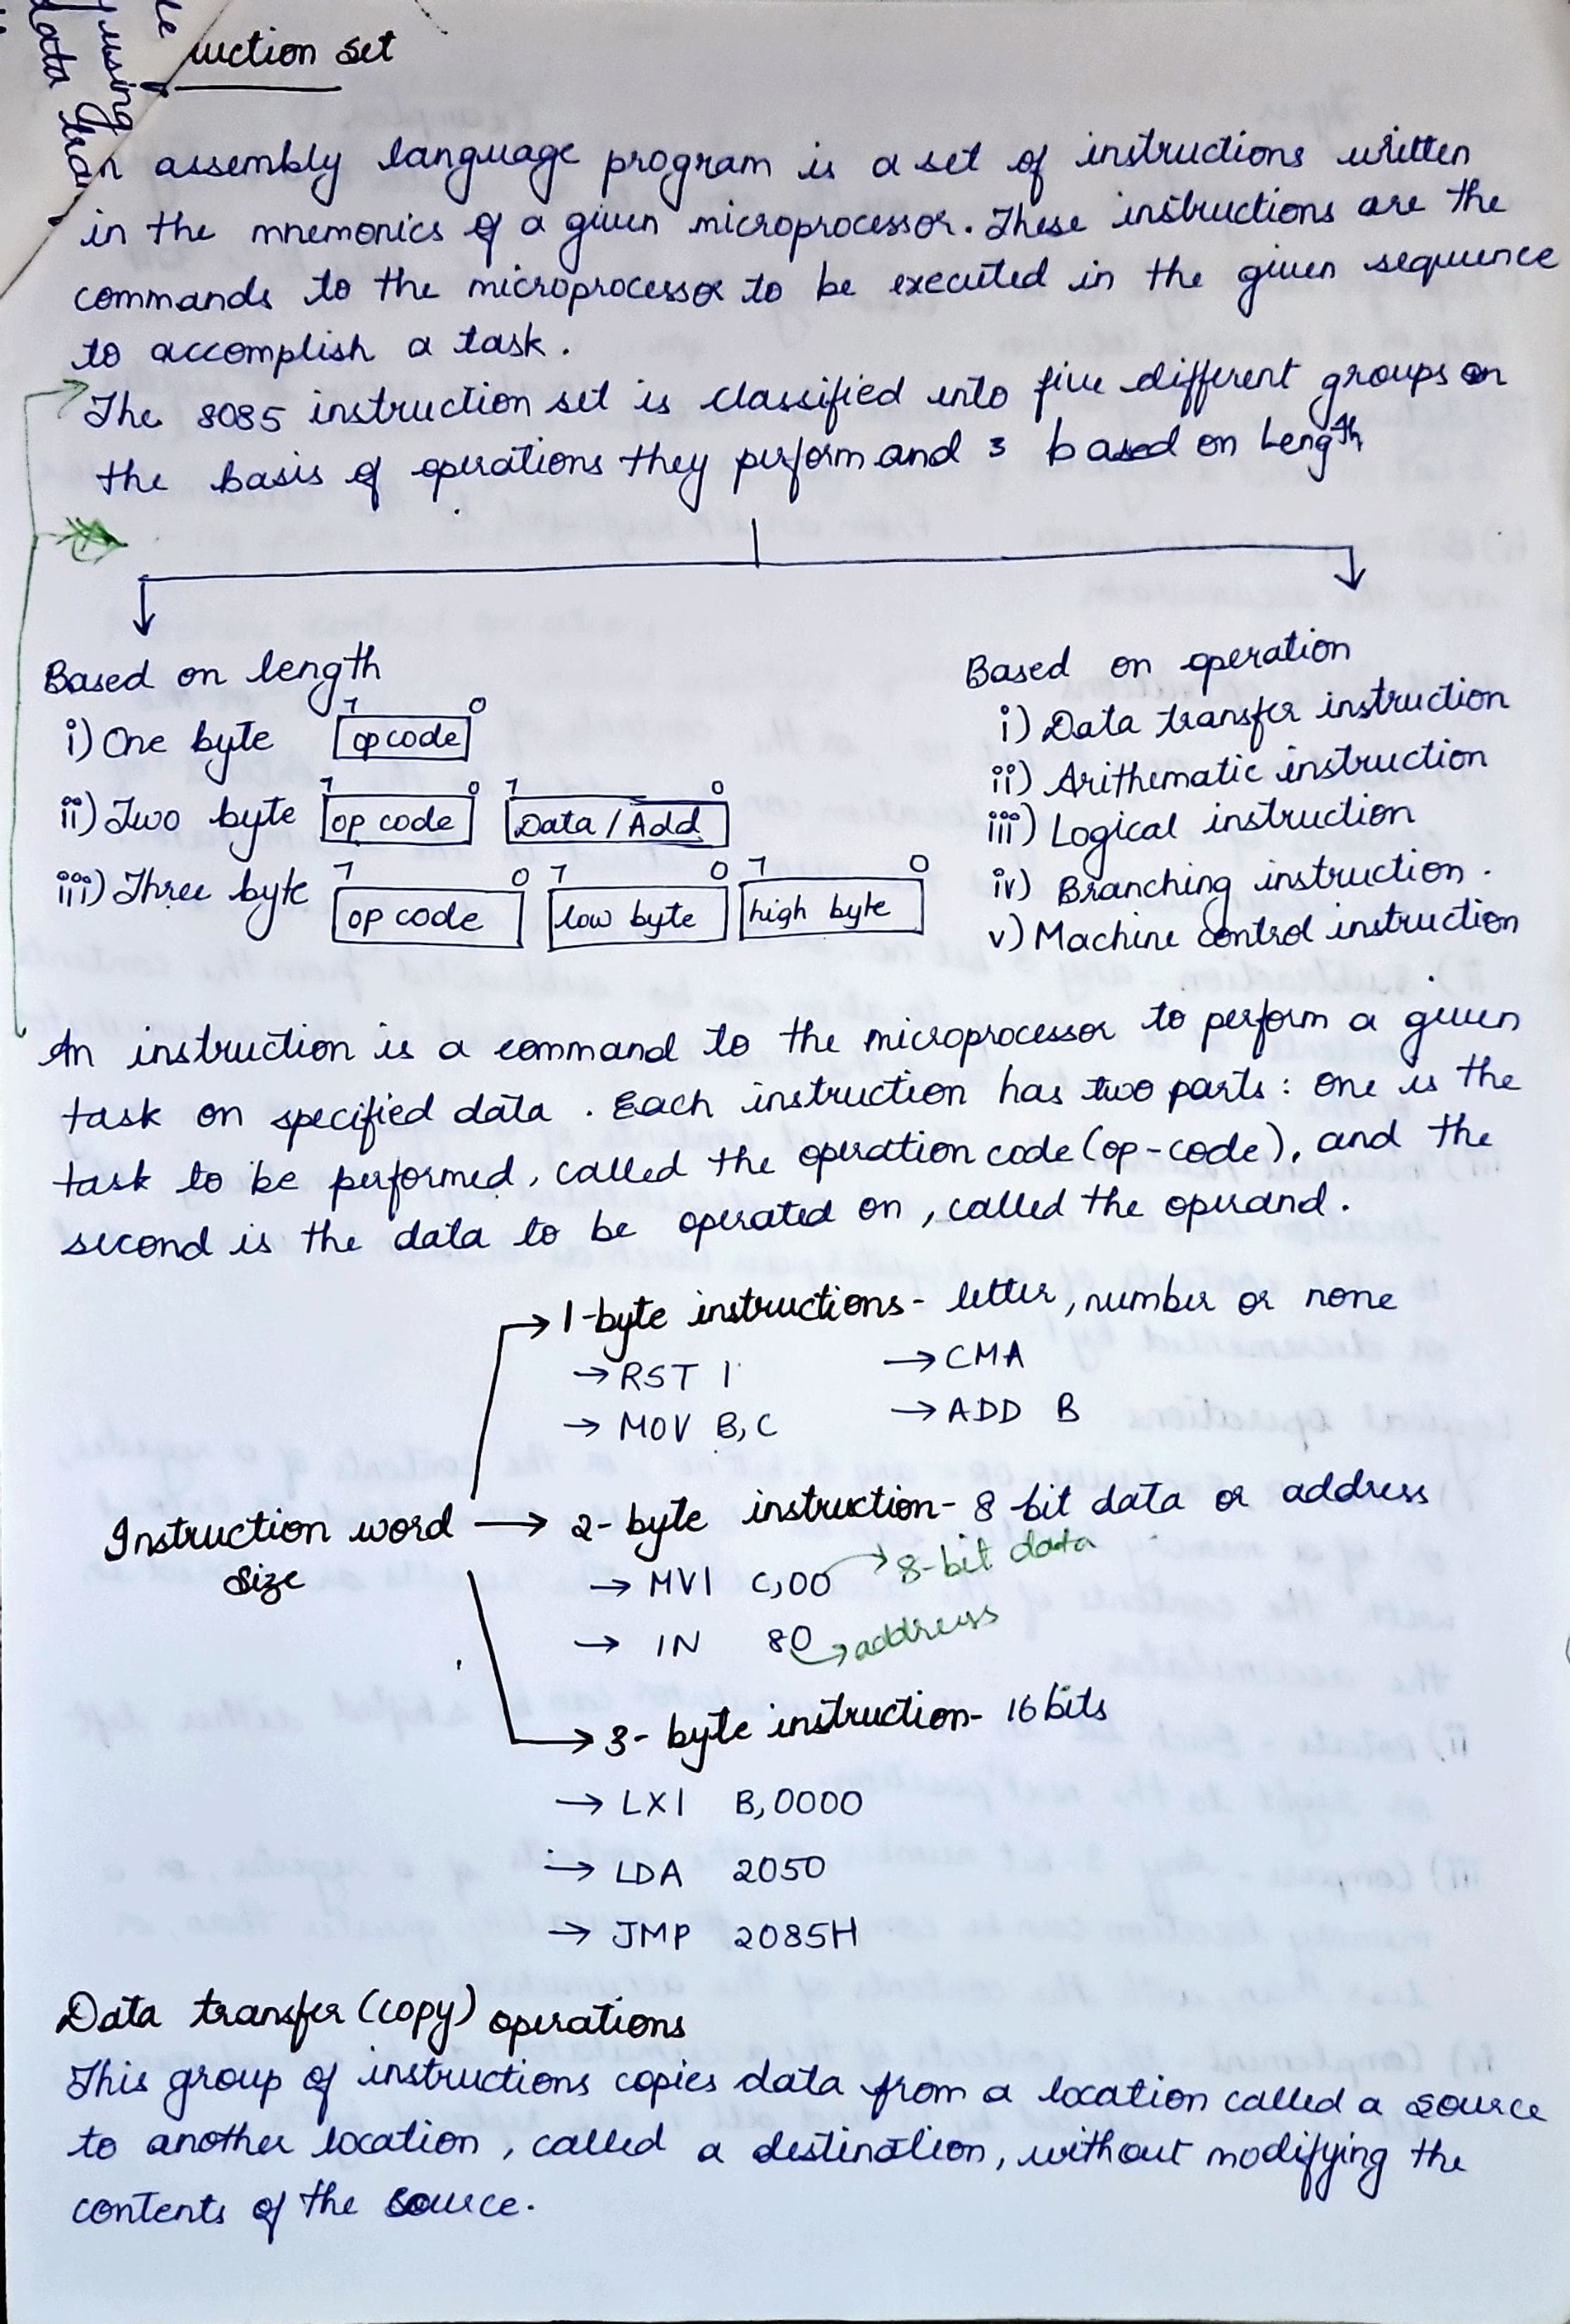 le
using
data tran
uction set
An assembly language program is a set of instructions written
in the mnemonics of a given microprocessor. These instructions are the
commands to the microprocessor to be executed in the given sequence
to accomplish a task.
The 8085 instruction set is classified into five different groups on
the basis of operations they perform and 3 based on Length
Based on length
i) One byte 7 0 op code
ii) Two byte 7 0 op code 7 0 Data / Add
iii) Three byte 7 0 op code 7 0 low byte 7 0 high byte
Based on operation
i) Data transfer instruction
ii) Arithematic instruction
iii) Logical instruction
iv) Branching instruction.
v) Machine control instruction
An instruction is a command to the microprocessor to perform a given
task on specified data. Each instruction has two parts: One is the
task to be performed, called the operation code (op-code), and the
second is the data to be operated on, called the operand.
Instruction word
size
→ 1-byte instructions- letter, number or none
→ RST 1 → CMA
→ MOV B,C → ADD B
→ 2-byte instruction- 8 bit data or address
→ MVI C,00 → 8-bit data
→ IN 80 → address
→ 3-byte instruction- 16 bits
→ LXI B,0000
→ LDA 2050
→ JMP 2085H
Data transfer (copy) operations
This group of instructions copies data from a location called a source
to another location, called a destination, without modifying the
contents of the source.